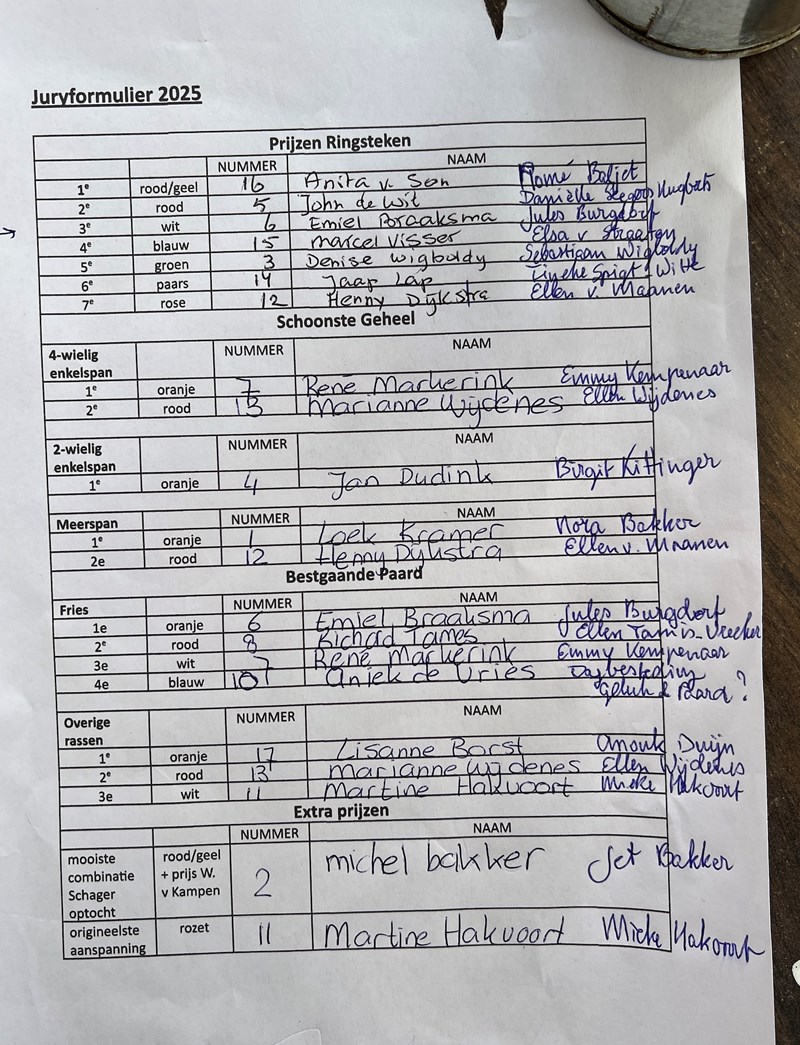 Juryformulier 2025
Prijzen Ringsteken
NUMMER NAAM
1e rood/geel 16 Anita v. Son Baltet
2e rood 5 John de Wit Daniëlle Segers Hugberts
3e wit 6 Emiel Braaksma Jules Burgdorf
4e blauw 15 Marcel Visser Elsa v Straaten
5e groen 3 Denise Wigboldy Sebastiaan Wigboldy
6e paars 14 Jaap Lap Tineke Spigt Witte
7e rose 12 Henny Dijkstra Ellen v. Maanen
Schoonste Geheel
4-wielig enkelspan NUMMER NAAM
1e oranje 7 René Markerink Emmy Kempenaar
2e rood 13 Marianne Wijdenes Ellen Wijdenes
2-wielig enkelspan NUMMER NAAM
1e oranje 4 Jan Dudink Birgit Kittinger
Meerspan NUMMER NAAM
1e oranje 1 Loek Kramer Nora Bakker
2e rood 12 Henny Dijkstra Ellen v. Maanen
Bestgaande Paard
Fries NUMMER NAAM
1e oranje 6 Emiel Braaksma Jules Burgdorf
2e rood 8 Richard Tames Ellen Tamis-Vreeker
3e wit 7 René Markerink Emmy Kempenaar
4e blauw 10 Aniek de Vries Dagbesteding
Geluk & Paard ?
Overige rassen NUMMER NAAM
1e oranje 17 Lisanne Borst Anouk Duijn
2e rood 13 Marianne Wijdenes Ellen Wijdenes
3e wit 11 Martine Hakvoort Mieke Hakvoort
Extra prijzen
NUMMER NAAM
mooiste combinatie Schager optocht rood/geel + prijs W. v Kampen 2 michel bakker Jet Bakker
origineelste aanspanning rozet 11 Martine Hakvoort Mieke Hakvoort